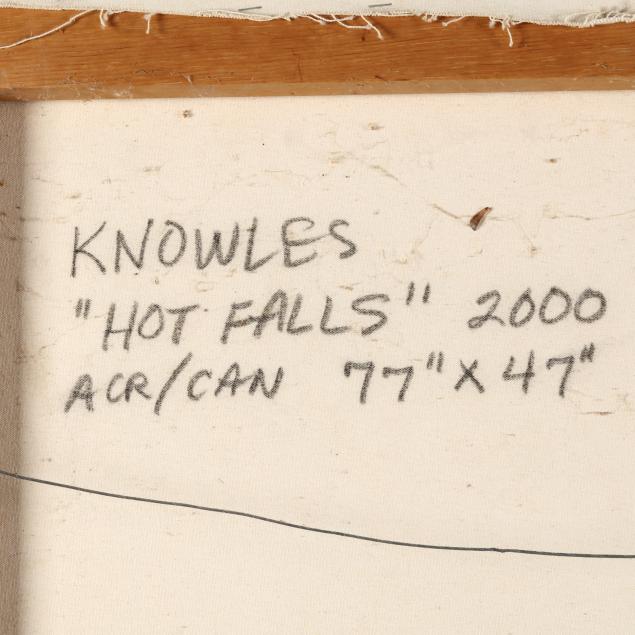 KNOWLES
"HOT FALLS" 2000
ACR/CAN 77" X 47"